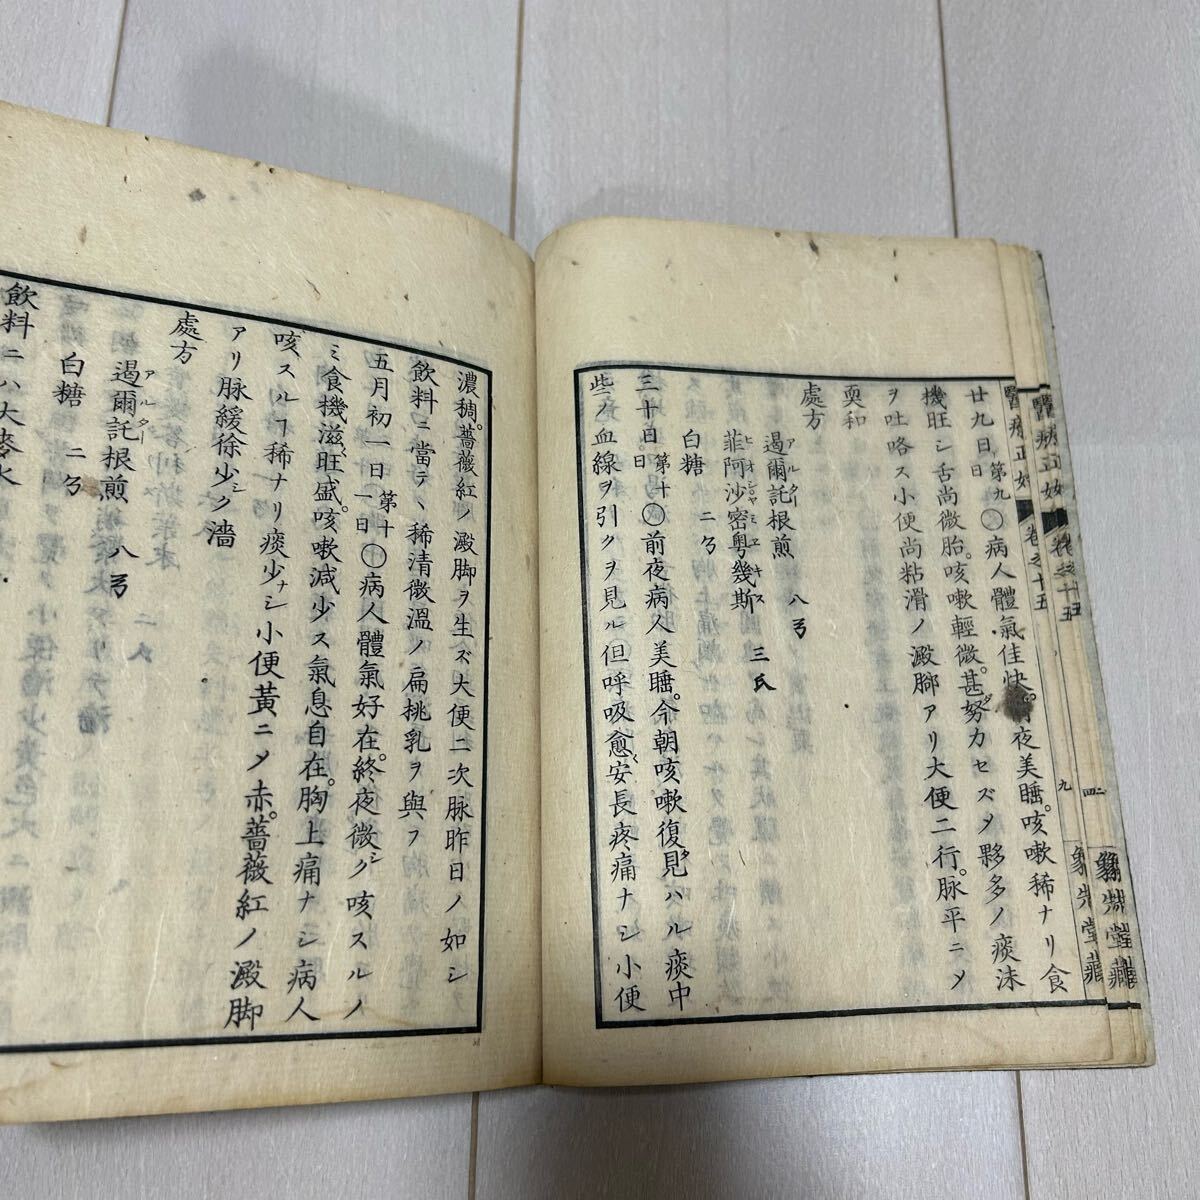 廿九日第九日〇病人體氣佳快。前夜美睡。咳嗽稀ナリ食
機旺シ舌尚微胎。咳嗽輕微。甚努力セズメ夥多ノ痰沫
ヲ吐咯ス小便尚粘滑ノ澱脚アリ大便二行。脉平ニメ
耎和
處方
遏爾託根煎 八弓
アルタア
菲阿沙密粤幾斯 三氏
ヒオシヤミエキス
白糖 二
三十日第十日〇前夜病人美睡。今朝咳嗽復見ハル痰中
些ノ血線ヲ引クヲ見ル但呼吸愈安長疼痛ナシ小便
醫療正始 卷之十五
九
象先堂藏
醫療正始 卷之十五
象先堂藏
濃稠。薔薇紅ノ澱脚ヲ生ズ大便二次脉昨日ノ如シ
飲料ニ當テヽ稀清微溫ノ扁桃乳ヲ與フ
五月初一日第十一日〇病人體氣好在。終夜微シク咳スルノ
ミ食機滋旺盛。咳嗽減少ス氣息自在。胸上痛ナシ病人
咳スルヿ稀ナリ痰少ナシ小便黃ニメ赤。薔薇紅ノ澱脚
アリ脉緩徐少シク濇
處方
遏爾託根煎 八弓
アルター
白糖 二
飲料ニハ大麥水